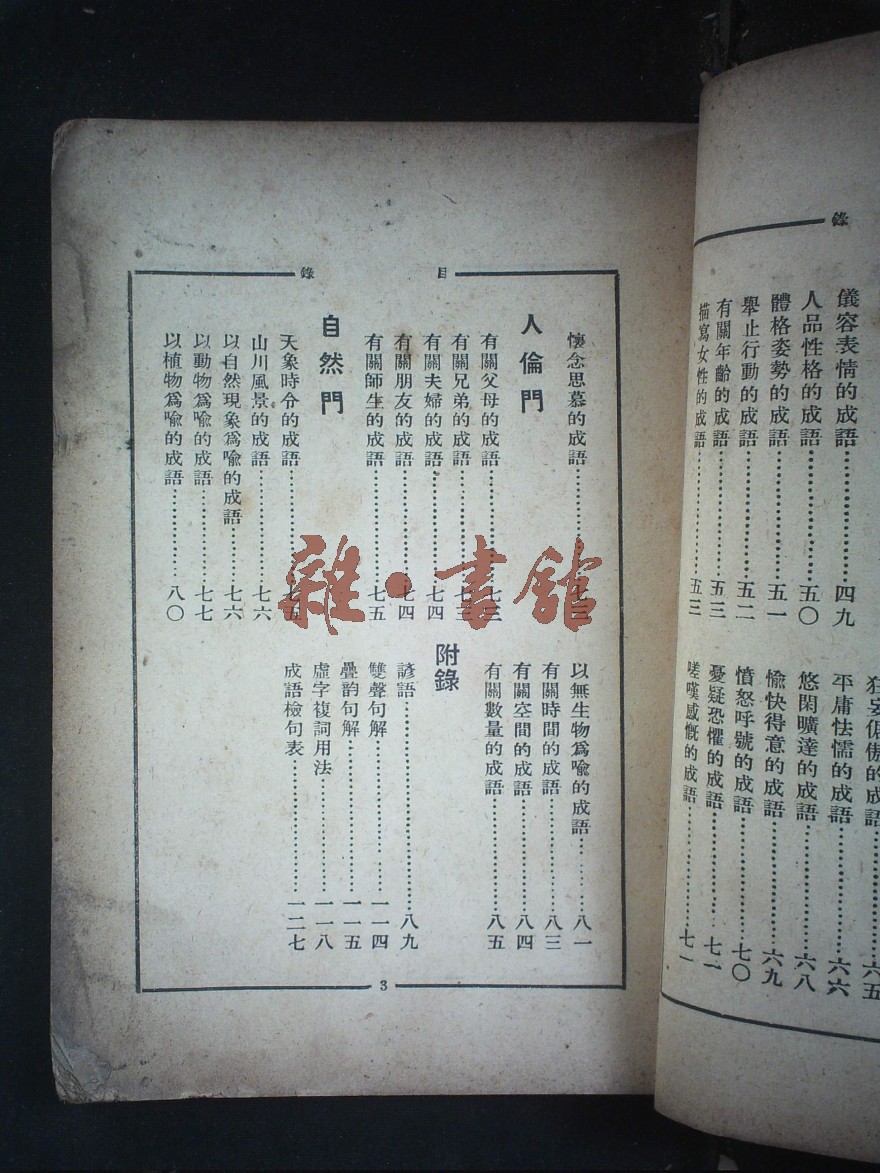 錄
儀容表情的成語……四九
人品性格的成語……五〇
體格姿勢的成語……五一
舉止行動的成語……五二
有關年齡的成語……五三
描寫女性的成語……五三
狂妄倨傲的成語……六五
平庸怯懦的成語……六六
悠閑曠達的成語……六八
愉快得意的成語……六九
憤怒呼號的成語……七〇
憂疑恐懼的成語……七一
嗟嘆感慨的成語……七一
目錄
懷念思慕的成語……七三
人倫門
有關父母的成語……七三
有關兄弟的成語……七三
有關夫婦的成語……七四
有關朋友的成語……七四
有關師生的成語……七五
自然門
天象時令的成語……七五
山川風景的成語……七六
以自然現象爲喻的成語……七六
以動物爲喻的成語……七七
以植物爲喻的成語……八〇
以無生物爲喻的成語……八一
有關時間的成語……八三
有關空間的成語……八四
有關數量的成語……八五
附錄
諺語……八九
雙聲句解……一一四
疊韵句解……一一五
虛字複詞用法……一一八
成語檢句表……一二七
3
雜·書館